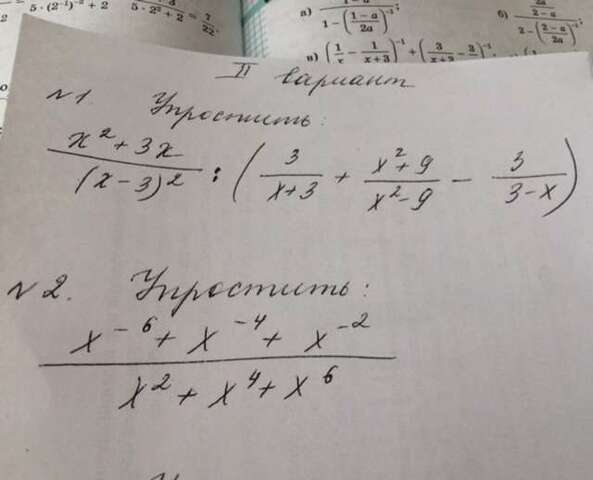 5·(2⁻¹)⁻² + 2
5·2² + 2 = 7/22.
а)
1 − ((1−a)/(2a))⁻¹ ;
б)
2 − ((2−a)/(2a))⁻¹ ;
в) (1/x − 1/(x+3))⁻¹ + (3/(x+3) − 3/
II вариант
N1. Упростить:
(x² + 3x)/(x−3)² : (3/(x+3) + (x²+9)/(x²−9) − 3/(3−x))
N2. Упростить:
(x⁻⁶ + x⁻⁴ + x⁻²)/(x² + x⁴ + x⁶)